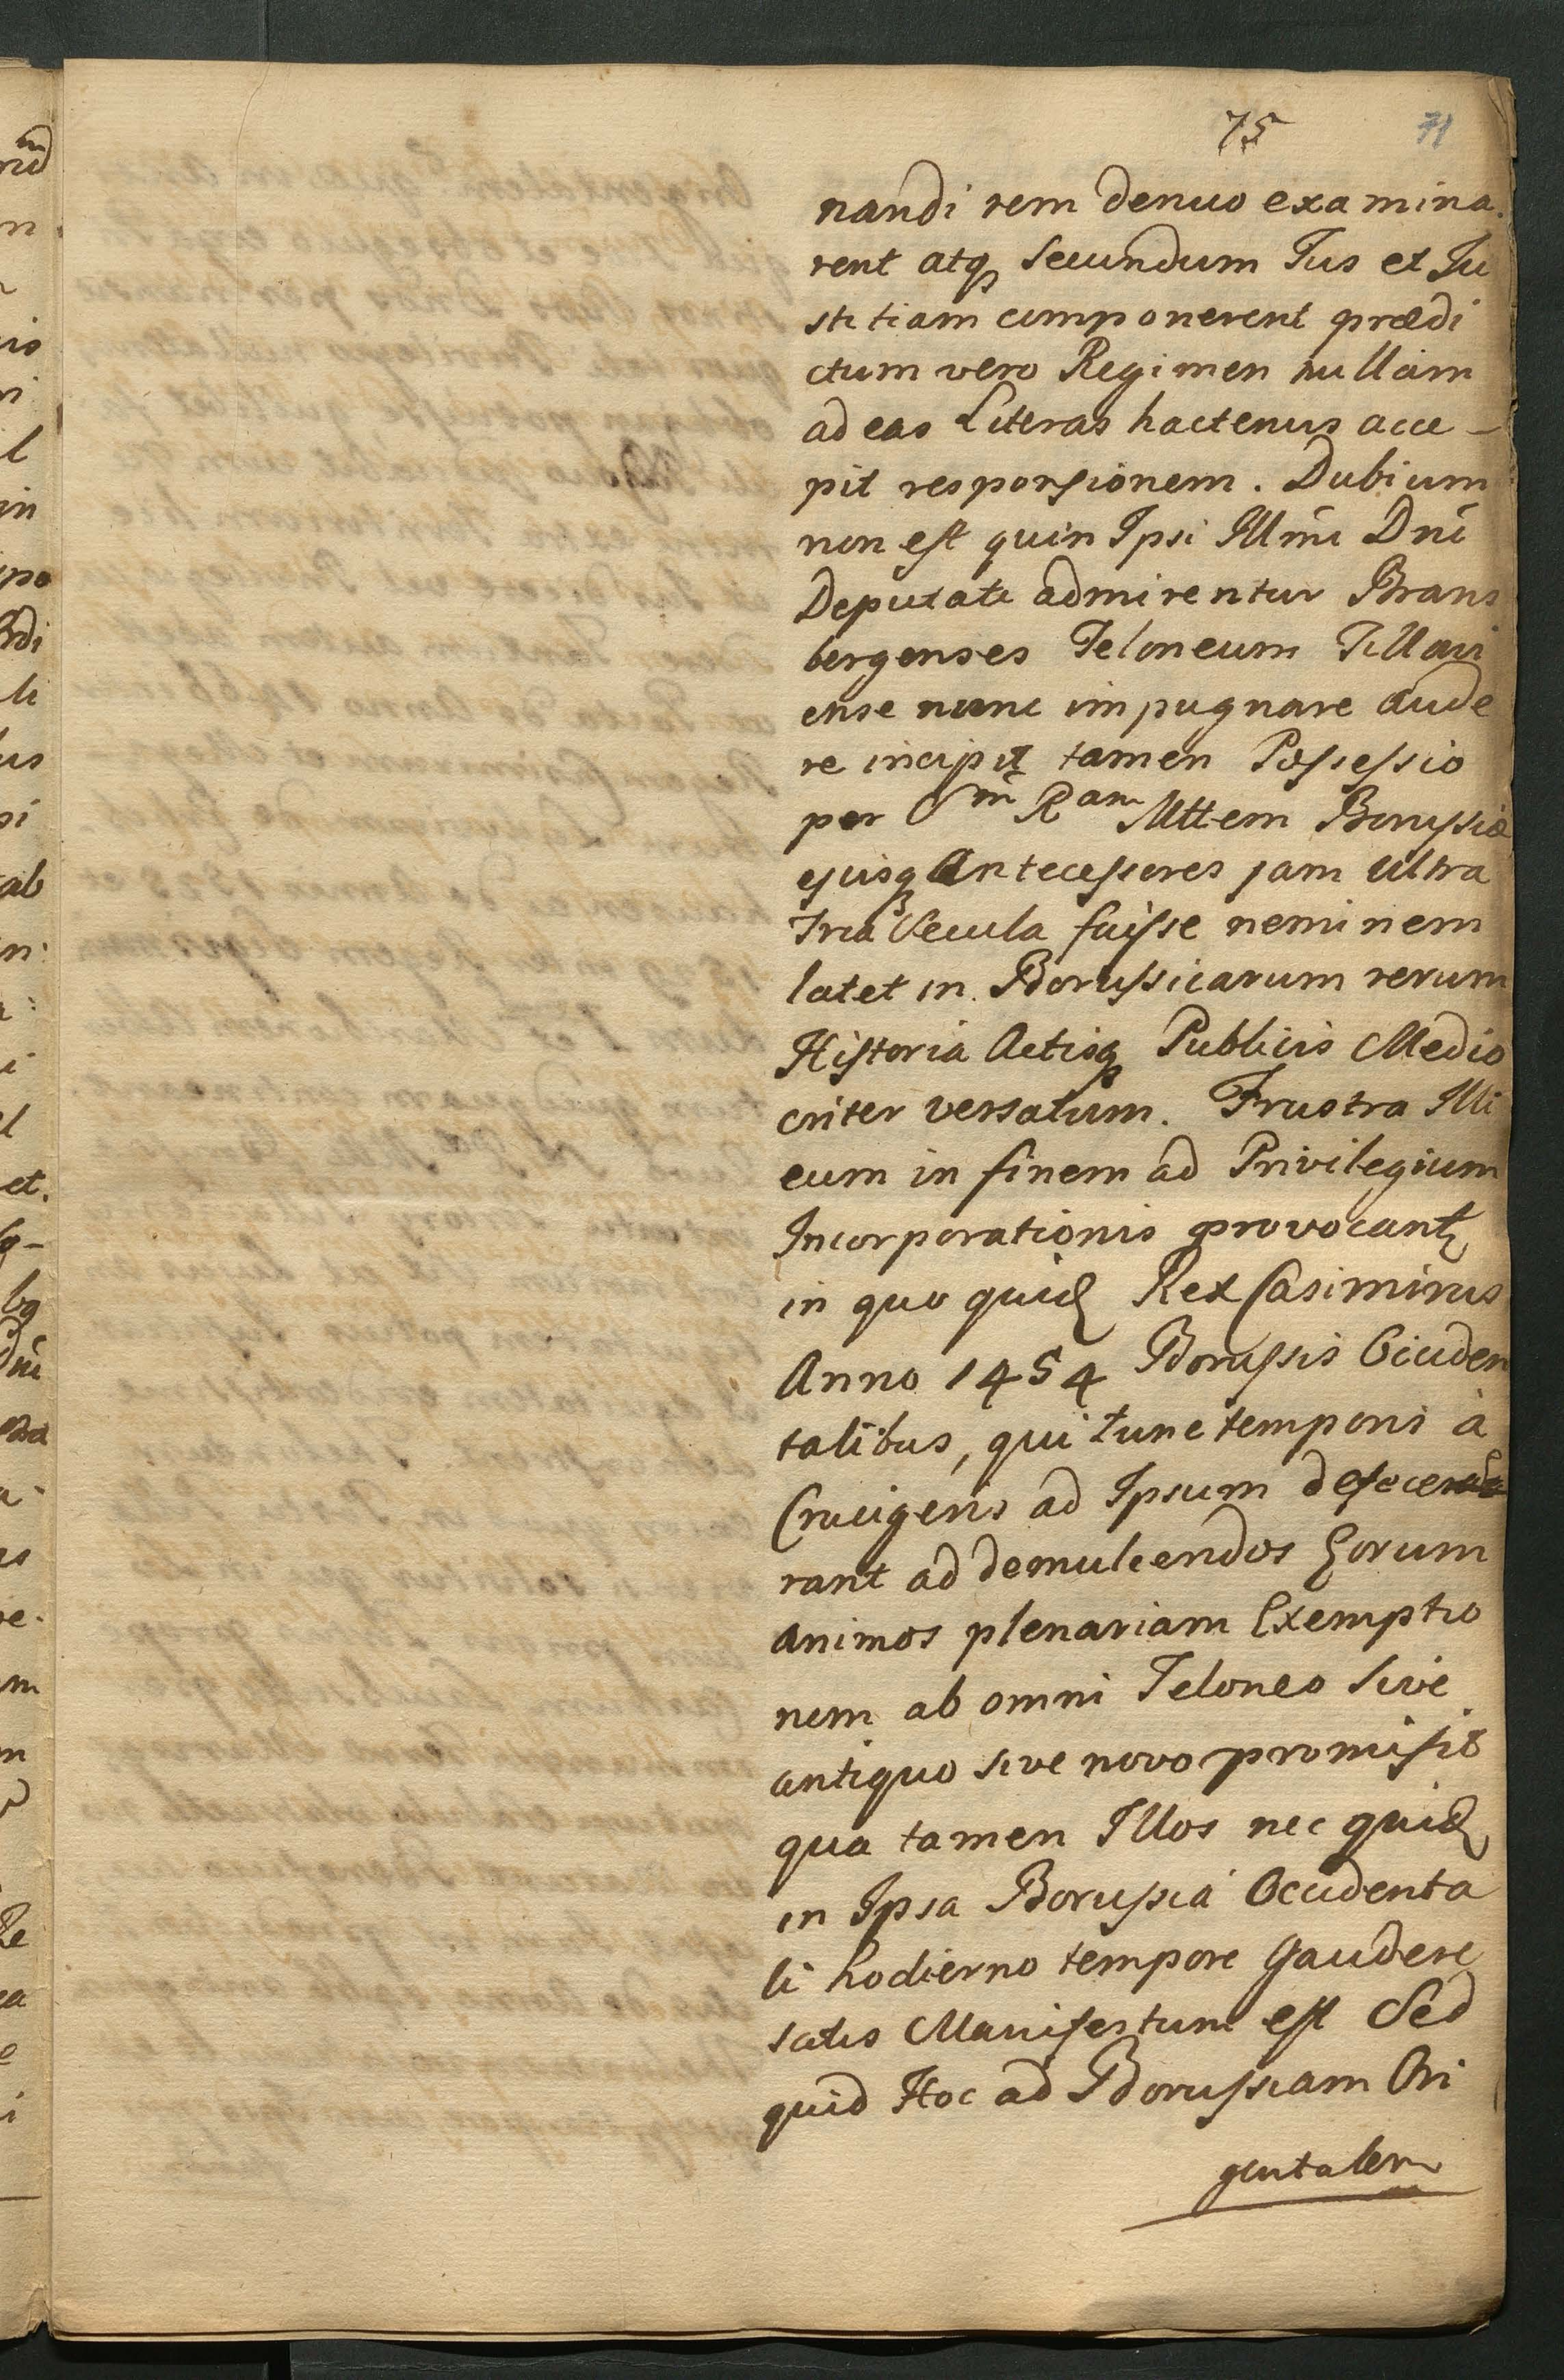 75 71
nandi rem denuo examina.
rent atq secundum Jus et Ju
stitiam componerent prædi
ctum vero Regimen nullam
ad eas Literas hactenus acce-
pit responsionem. Dubium
non est quin Ipsi Illm̄i Dn̄i
Deputati admirentur Brans
bergenses Teloneum Tillavi
ense nunc impugnare aude
re incipit tamen Possessio
per Sm̄ Ram Mttem Borussiæ
ejusq Antecessores jam ultra
Tria Secula fuisse neminem
latet in Borussicarum rerum
Historia Actisq Publicis Medio
criter versatum. Frustra Illi
eum in finem ad Privilegium
Incorporationis provocant
in quo quid Rex Casimirus
Anno 1454 Borussis Occiden
talibus, qui tunc temporis à
Crucigeris ad Ipsum defece
rant ad demulcendos Eorum
animos plenariam Exemptio
nem ab omni Teloneo sive
antiquo sive novo promisit
qua tamen Illos nec quid
in Ipsa Borussia Occidenta
li hodierno tempore Gaudere
satis Manifestum est Sed
quid Hoc ad Borussiam Ori
gentalem